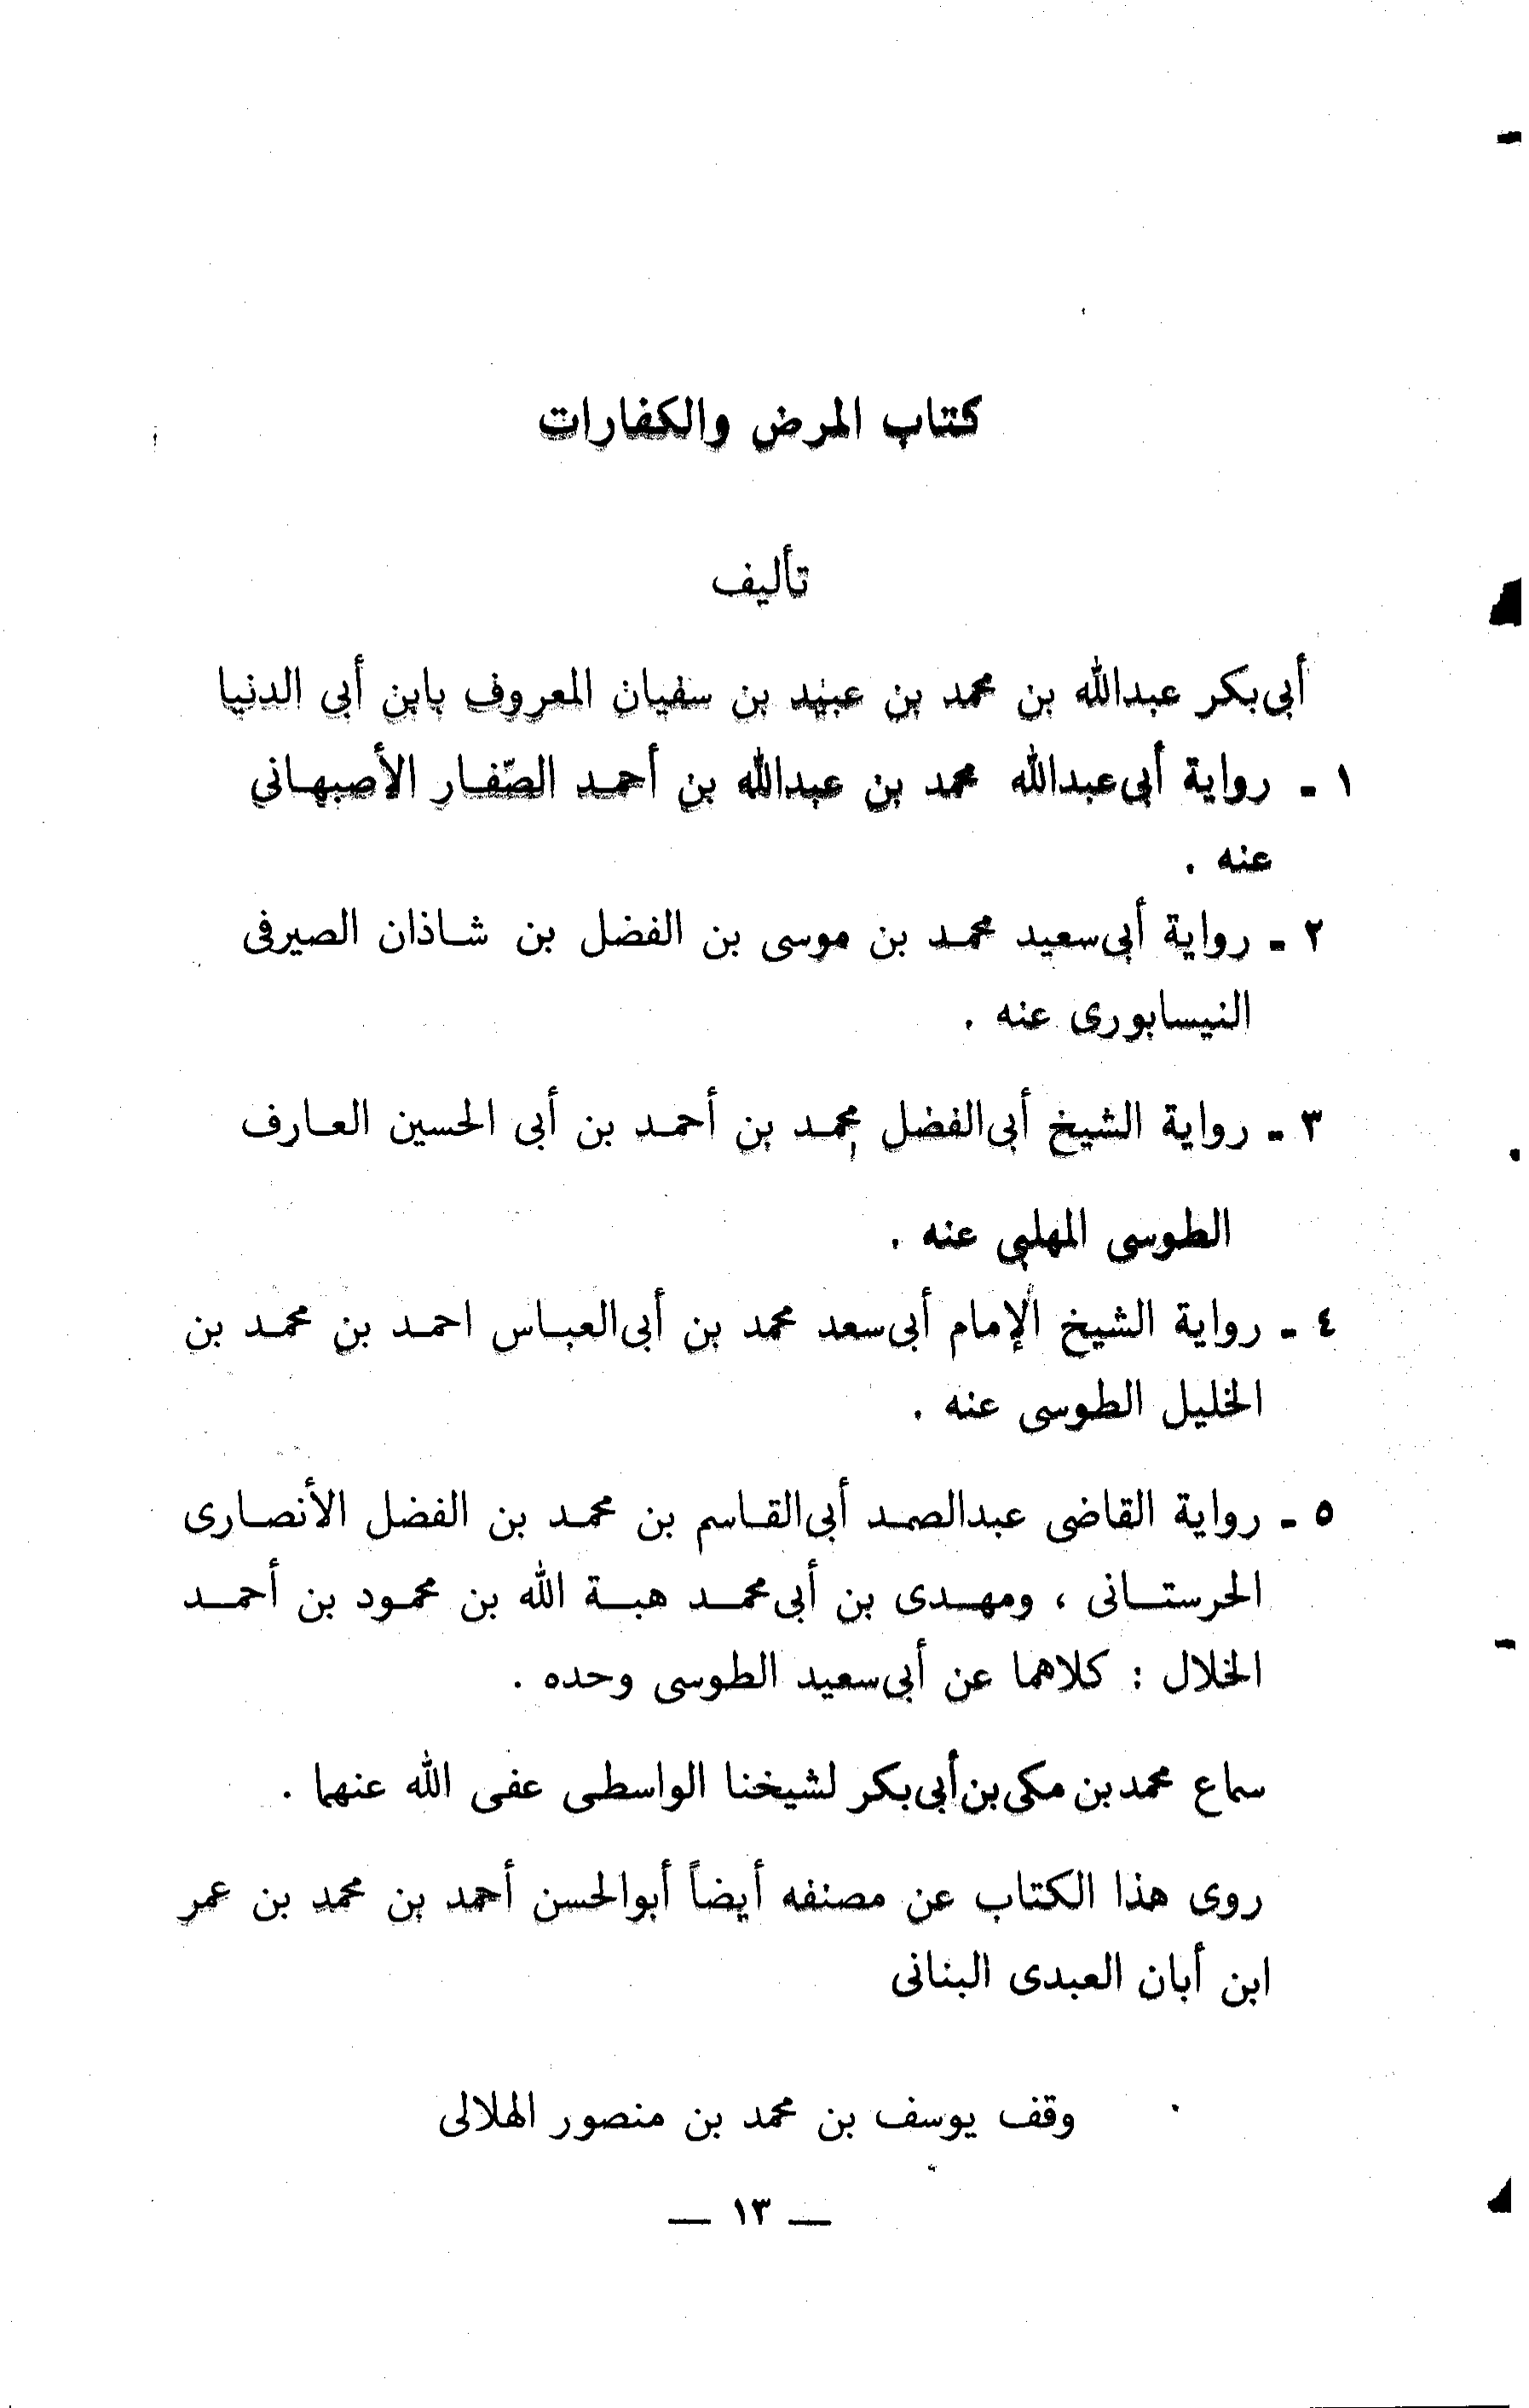 كتاب المرض والكفارات
تأليف
أبى بكر عبدالله بن محمد بن عبيد بن سفيان المعروف بابن أبى الدنيا
١ - رواية أبى عبدالله محمد بن عبدالله بن أحمد الصّفار الأصبهانى
عنه .
٢ - رواية أبى سعيد محمد بن موسى بن الفضل بن شاذان الصيرفى
النيسابورى عنه .
٣ - رواية الشيخ أبى الفضل محمد بن أحمد بن أبى الحسين العارف
الطوسى المهلبى عنه .
٤ - رواية الشيخ الإمام أبى سعد محمد بن أبى العباس احمد بن محمد بن
الخليل الطوسى عنه .
٥ - رواية القاضى عبدالصمد أبى القاسم بن محمد بن الفضل الأنصارى
الحرستانى ، ومهدى بن أبى محمد هبة الله بن محمود بن أحمد
الخلال : كلاهما عن أبى سعيد الطوسى وحده .
سماع محمد بن مكى بن أبى بكر لشيخنا الواسطى عفى الله عنهما .
روى هذا الكتاب عن مصنفه أيضاً أبوالحسن أحمد بن محمد بن عمر
ابن أبان العبدى البنانى
وقف يوسف بن محمد بن منصور الهلالى
— ١٣ —